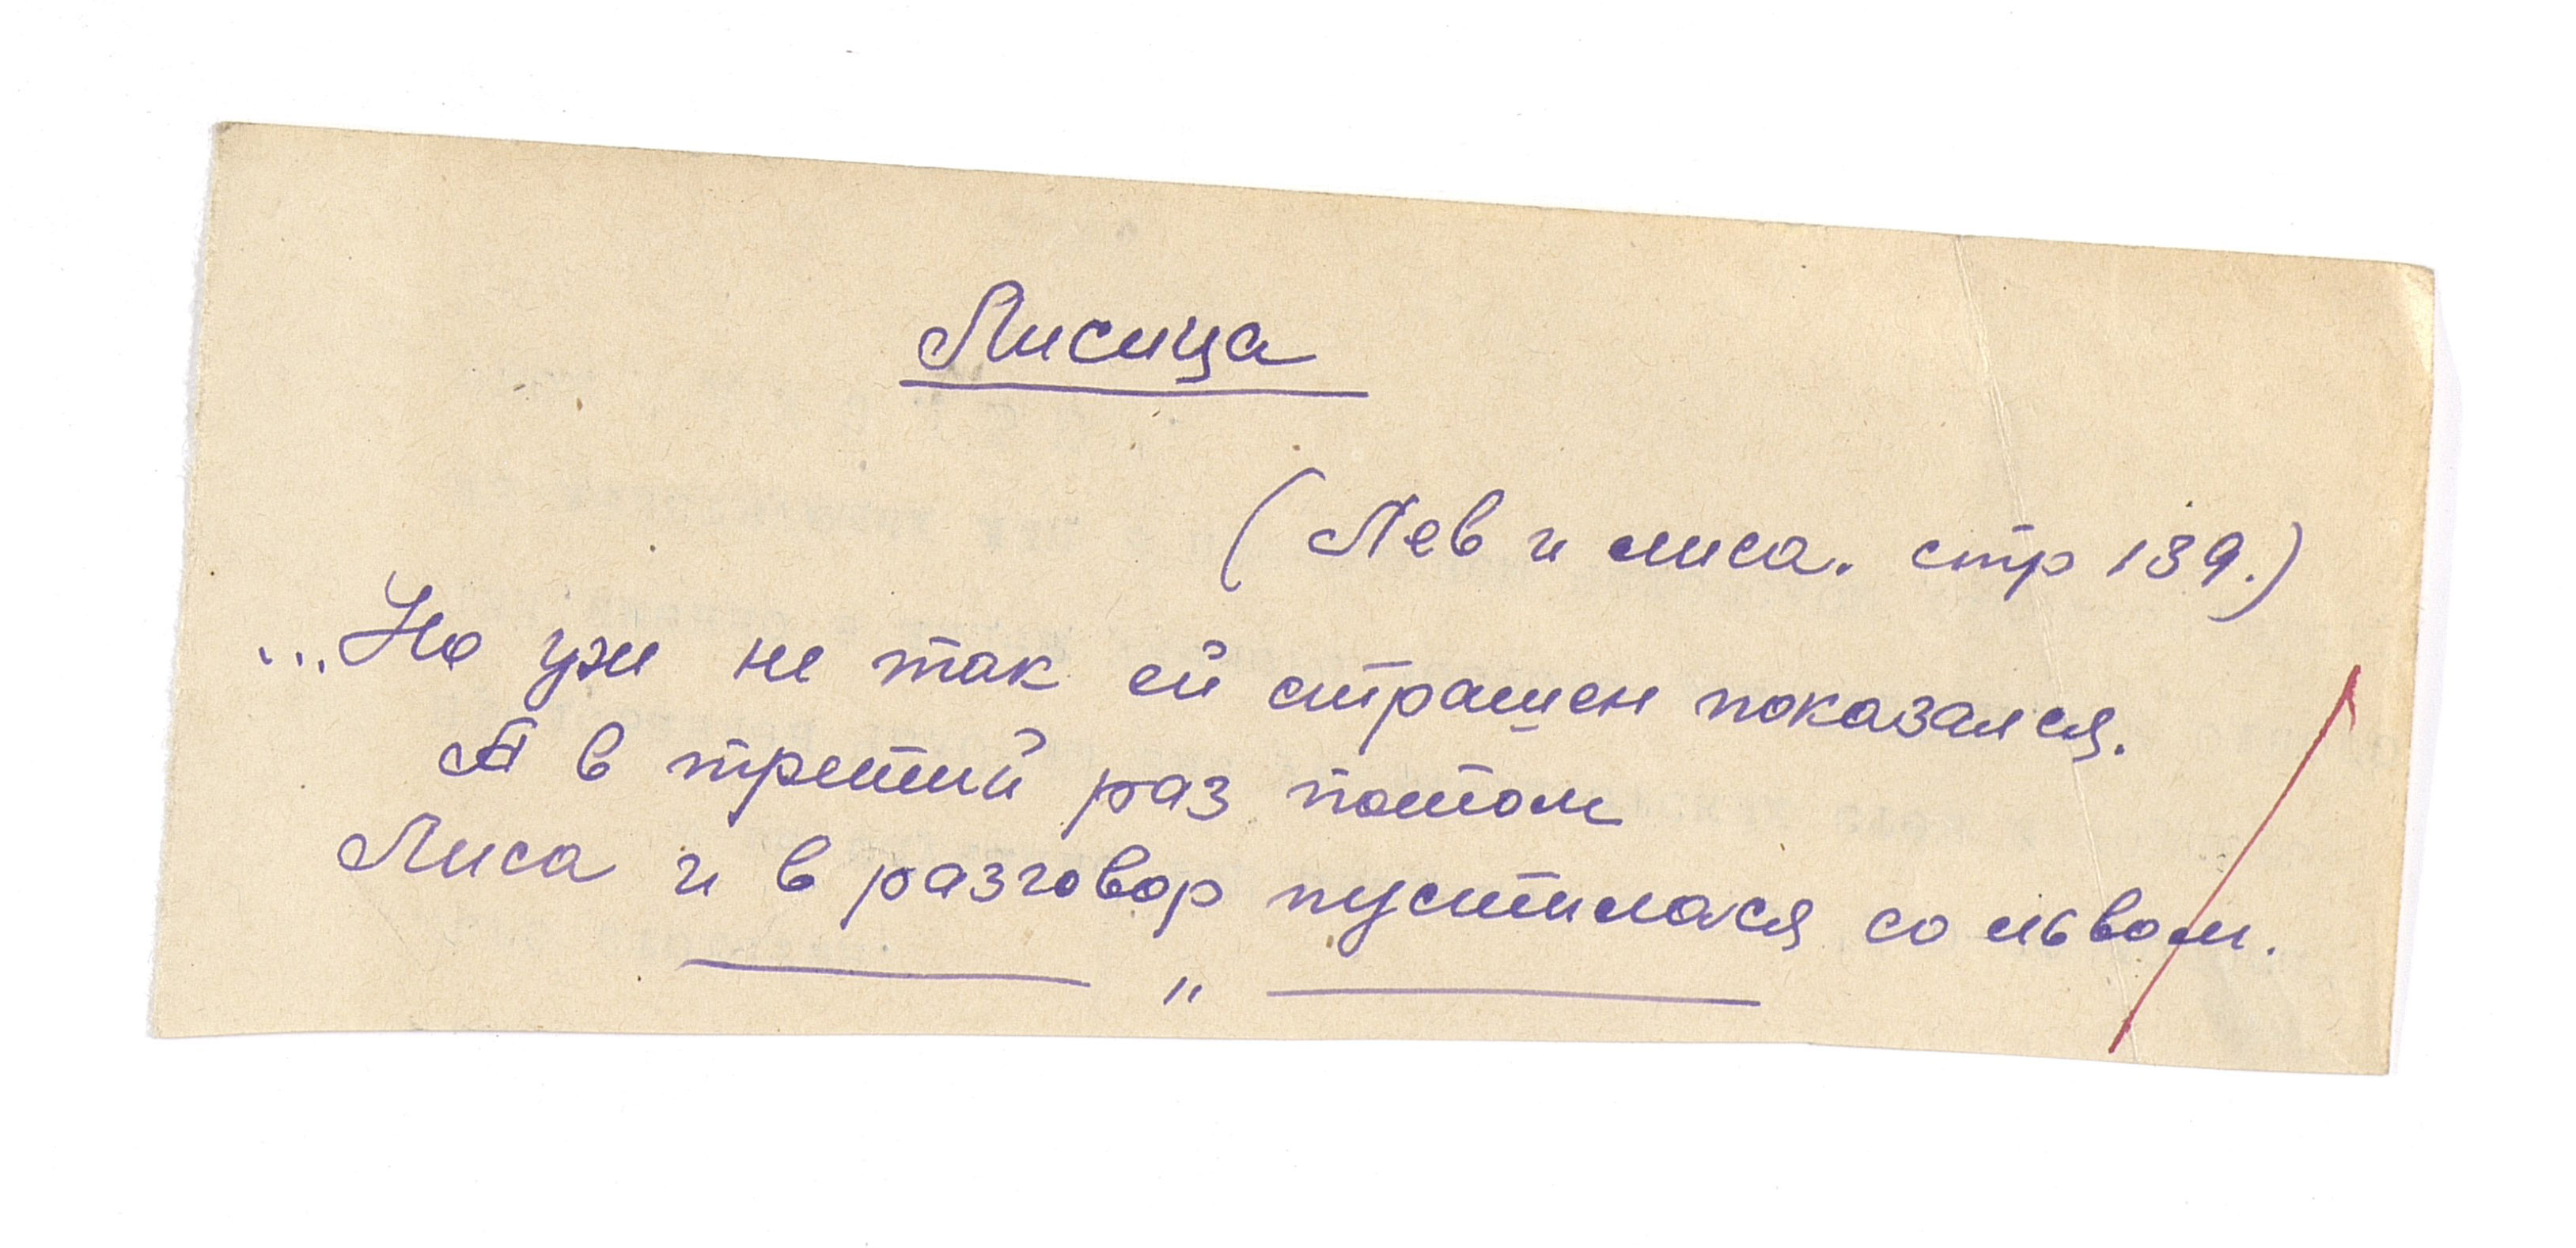 Лисица
(Лев и лиса. стр 139.)
...Но уж не так ей страшен показался.
А в третий раз потом
Лиса и в разговор пустилася со львом.
"